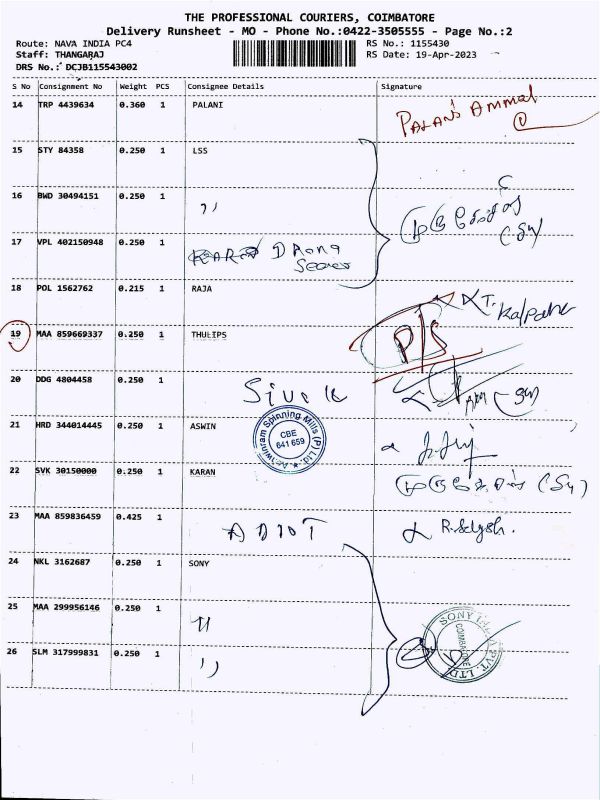 THE PROFESSIONAL COURIERS, COIMBATORE
Delivery Runsheet - MO - Phone No.:0422-3505555 - Page No.:2
Route: NAVA INDIA PC4 RS No.: 1155430
Staff: THANGARAJ RS Date: 19-Apr-2023
DRS No.: DCJB115543002
S No Consignment No Weight PCS Consignee Details Signature
14 TRP 4439634 0.360 1 PALANI
PALANI Ammal
15 STY 84358 0.250 1 LSS
16 BWD 30494151 0.250 1 ,,
17 VPL 402150948 0.250 1
18 POL 1562762 0.215 1 RAJA T. Kalpana
19 MAA 859669337 0.250 1 THULIPS P/S
20 DDG 4804458 0.250 1
21 HRD 344014445 0.250 1 ASWIN
Spinning Mills (P) Ltd.
CBE
641 659
22 SVK 30150000 0.250 1 KARAN
23 MAA 859836459 0.425 1
24 NKL 3162687 0.250 1 SONY
25 MAA 299956146 0.250 1 ,,
26 SLM 317999831 0.250 1 ,,
SONY PVT. LTD.
COIMBATORE